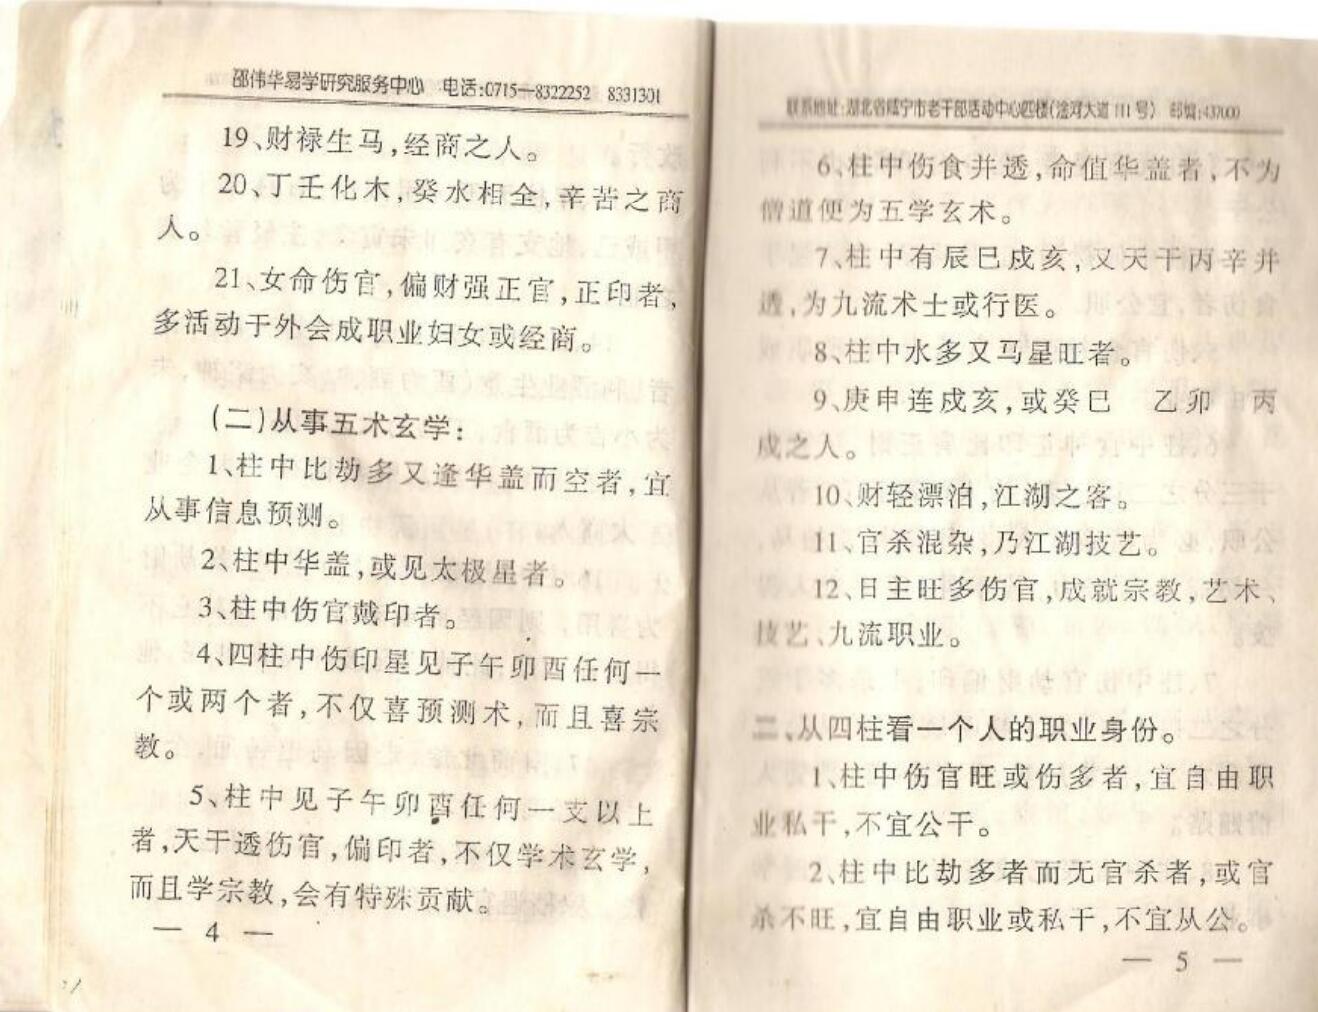 邵伟华易学研究服务中心 电话:0715—8322252 8331301
19、财禄生马,经商之人。
20、丁壬化木,癸水相全,辛苦之商
人。
21、女命伤官,偏财强正官,正印者,
多活动于外会成职业妇女或经商。
(二)从事五术玄学:
1、柱中比劫多又逢华盖而空者,宜
从事信息预测。
2、柱中华盖,或见太极星者。
3、柱中伤官戴印者。
4、四柱中伤印星见子午卯酉任何一
个或两个者,不仅喜预测术,而且喜宗
教。
5、柱中见子午卯酉任何一支以上
者,天干透伤官,偏印者,不仅学术玄学,
而且学宗教,会有特殊贡献。
— 4 —
联系地址:湖北省咸宁市老干部活动中心四楼(淦河大道111号) 邮编:437000
6、柱中伤食并透,命值华盖者,不为
僧道便为五学玄术。
7、柱中有辰巳戌亥,又天干丙辛并
透,为九流术士或行医。
8、柱中水多又马星旺者。
9、庚申连戌亥,或癸巳 乙卯 丙
戌之人。
10、财轻漂泊,江湖之客。
11、官杀混杂,乃江湖技艺。
12、日主旺多伤官,成就宗教,艺术、
技艺、九流职业。
二、从四柱看一个人的职业身份。
1、柱中伤官旺或伤多者,宜自由职
业私干,不宜公干。
2、柱中比劫多者而无官杀者,或官
杀不旺,宜自由职业或私干,不宜从公。
— 5 —